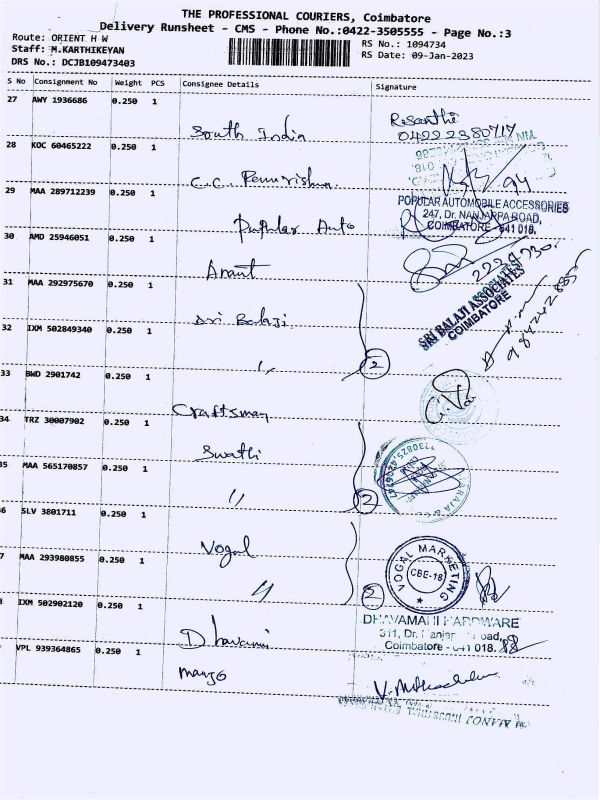 THE PROFESSIONAL COURIERS, Coimbatore
Delivery Runsheet - CMS - Phone No.:0422-3505555 - Page No.:3
Route: ORIENT H W
Staff: M.KARTHIKEYAN
DRS No.: DCJB109473403
RS No.: 1094734
RS Date: 09-Jan-2023
S No Consignment No Weight PCS Consignee Details Signature
27 AWY 1936686 0.250 1 South India
R.Santhi
28 KOC 60465222 0.250 1 C.C.
29 MAA 289712239 0.250 1 Popular Auto
POPULAR AUTOMOBILE ACCESSORIES
247, Dr. NANJAPPA ROAD,
COIMBATORE 641 018.
30 AMD 25946051 0.250 1 Anant
31 MAA 292975670 0.250 1 Sri Balaji
SRI BALAJI ASSOCIATES
COIMBATORE
32 IXM 502849340 0.250 1 "
2
33 BWD 2901742 0.250 1 Craftsman
34 TRZ 30007902 0.250 1 Swathi
35 MAA 565170857 0.250 1 "
2
6 SLV 3801711 0.250 1 Vogal
7 MAA 293980855 0.250 1 "
2
VOGAL MARKETING
CBE-18
IXM 502902120 0.250 1
DHAVAMANI HARDWARE
311, Dr. Nanjap Road,
Coimbatore - 641 018.
VPL 939364865 0.250 1